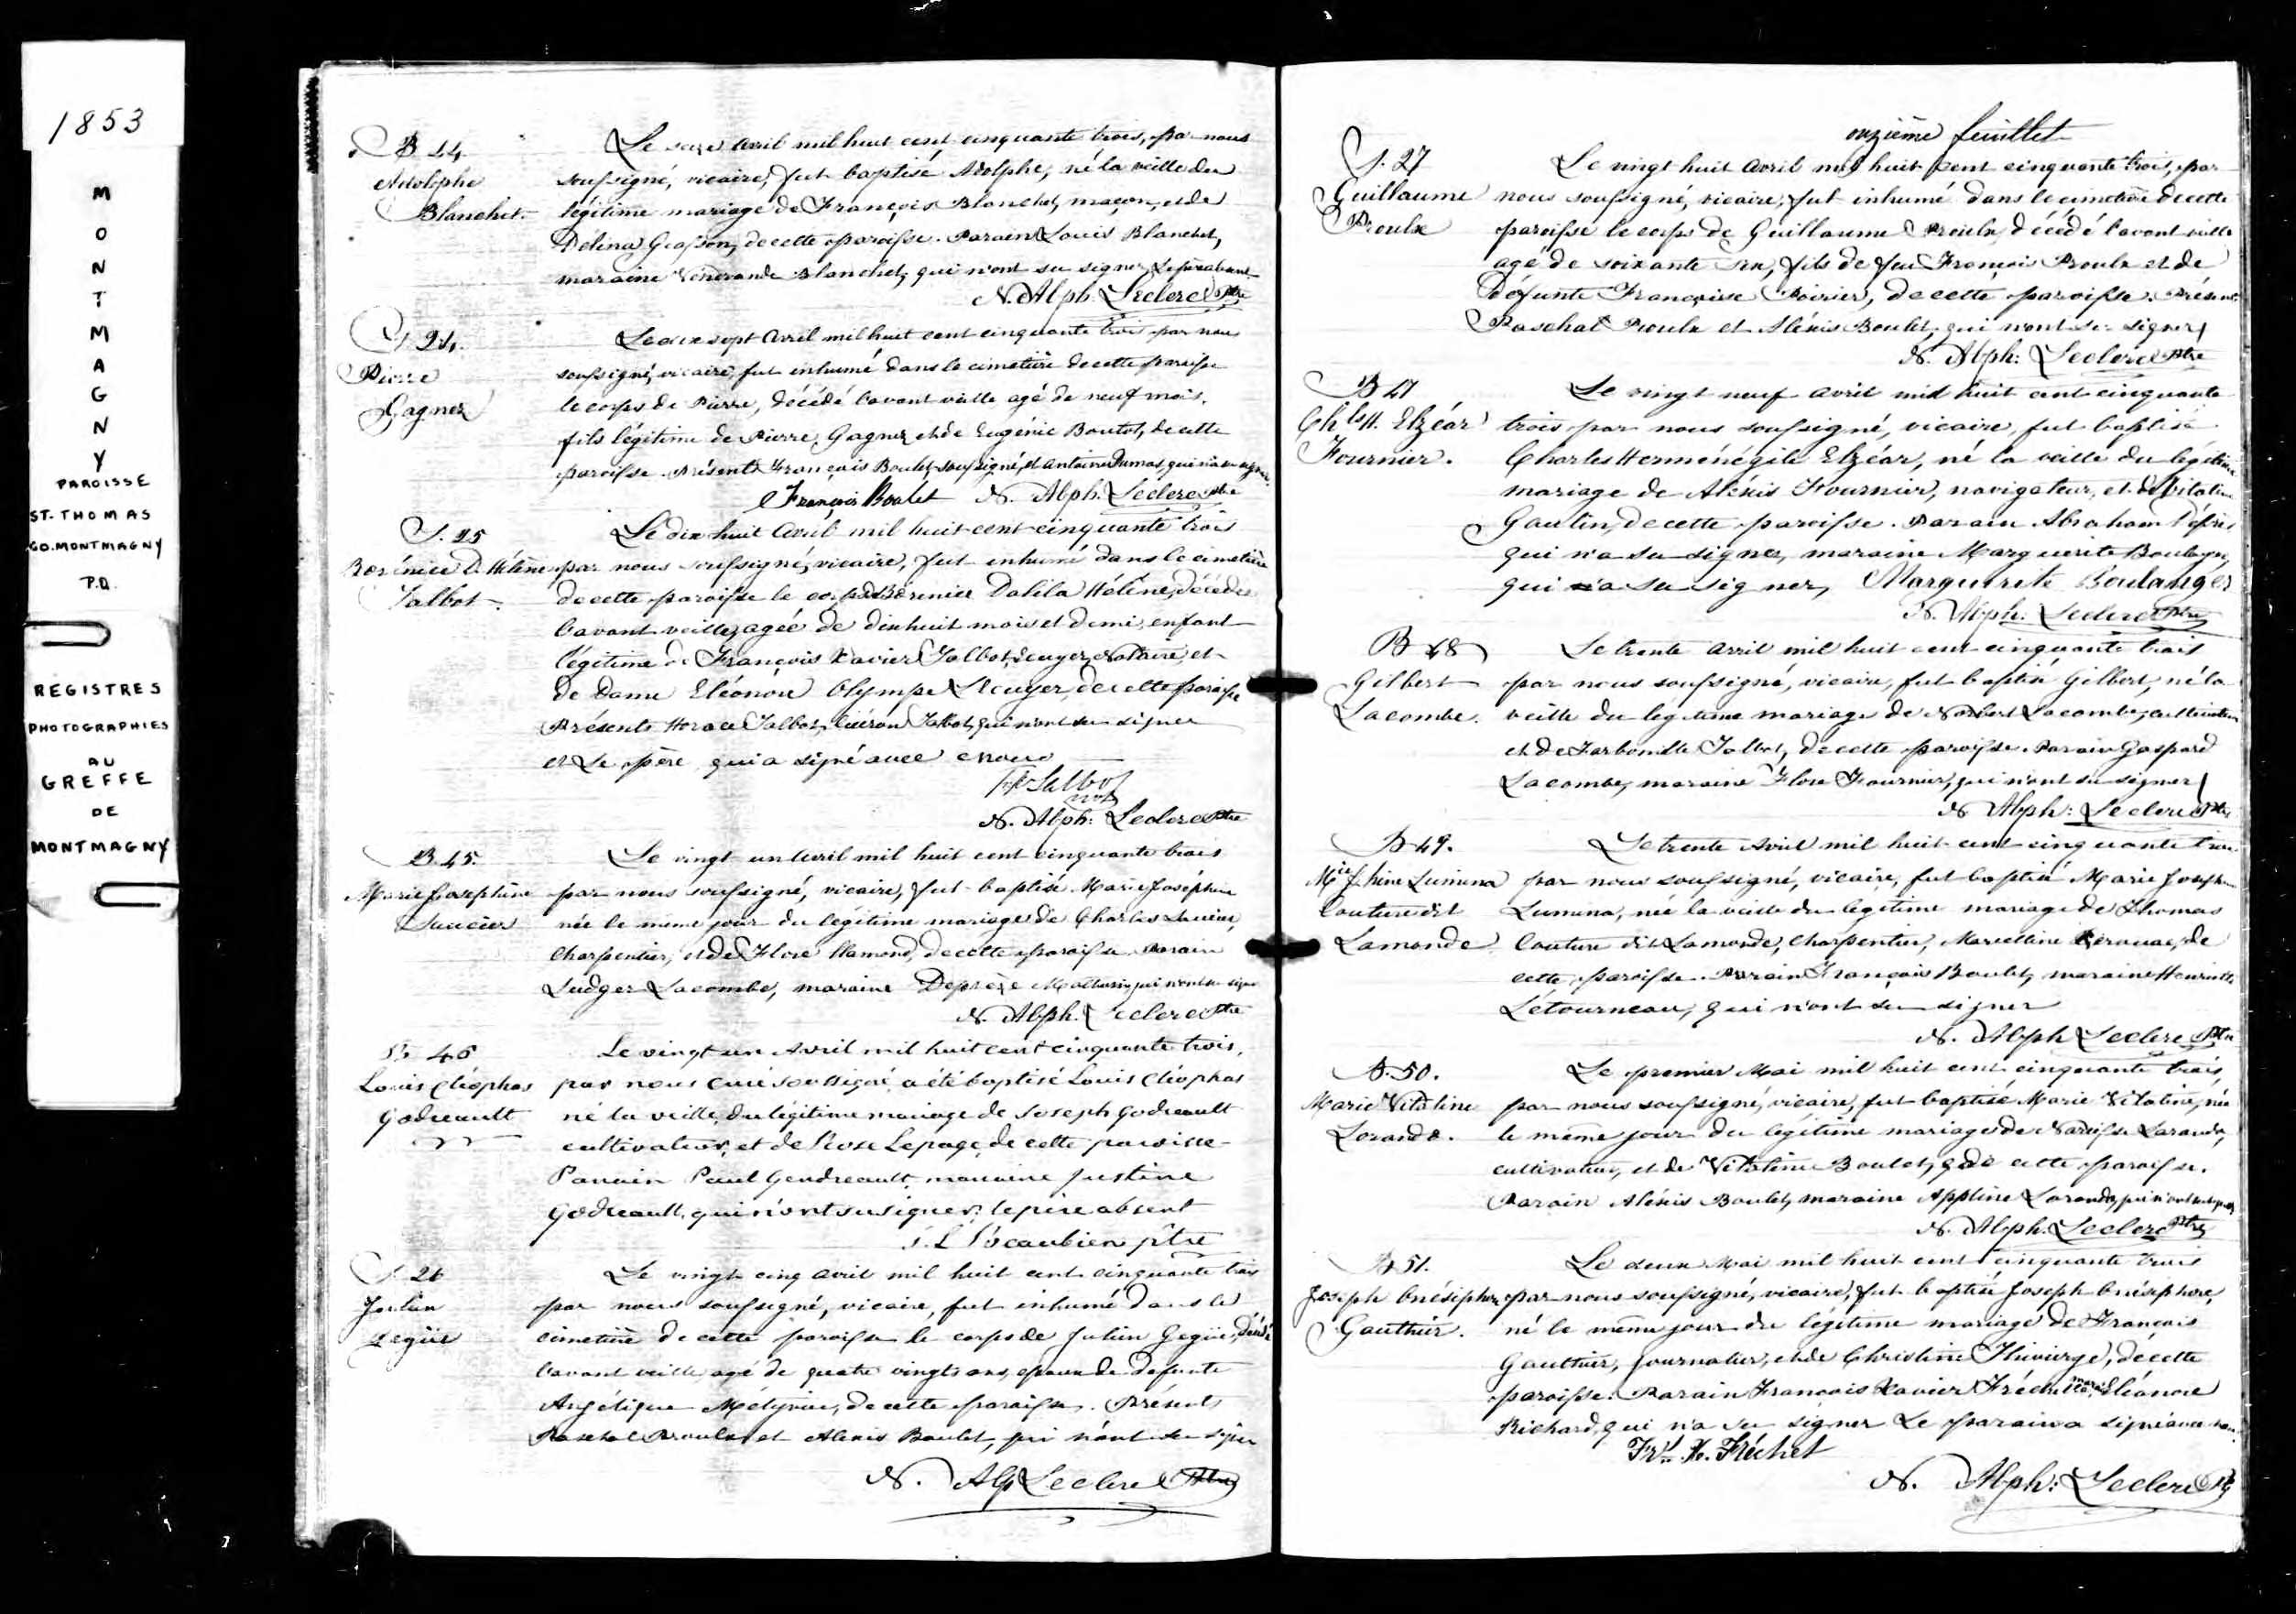 1853
MONTMAGNY
PAROISSE
ST. THOMAS
CO. MONTMAGNY
P.Q.
REGISTRES
PHOTOGRAPHIES
AU
GREFFE
DE
MONTMAGNY
B 44.
Adolphe
Blanchet.
Le seize avril mil huit cent cinquante trois, par nous
soussigné, vicaire, fut baptisé Adolphe, né la veille du
légitime mariage de François Blanchet, maçon, et de
Délina Giasson, de cette paroisse. Parain Louis Blanchet,
maraine Vénérande Blanchet, qui n'ont su signer. Le père absent
N. Alph. Leclerc Ptre
S. 24.
Pierre
Gagner
Le dix sept avril mil huit cent cinquante trois par nous
soussigné, vicaire, fut inhumé dans le cimetière de cette paroisse
le corps de Pierre, décédé l'avant veille agé de neuf mois,
fils légitime de Pierre Gagner et de Eugénie Boutot, de cette
paroisse. Présents François Boulet soussigné, et Antoine Dumas, qui n'a su signer.
François Boulet N. Alph. Leclerc Ptre
S. 25
Bérénice D. Hélène
Talbot.
Le dix huit avril mil huit cent cinquante trois
par nous soussigné, vicaire, fut inhumé dans le cimetière
de cette paroisse le corps de Bérénice Dalila Hélène, décédée
l'avant veille, agée de dix huit mois et demi, enfant
légitime de François Xavier Talbot, Ecuyer, Notaire, et
de Dame Eléonore Olympe Lécuyer, de cette paroisse
Présents Horace Talbot, Talbot, qui n'ont su signer
et le père qui a signé avec nous
F X Talbot
N. Alph: Leclerc Ptre
B. 45.
Marie Joséphine
Saucier
Le vingt un avril mil huit cent cinquante trois
par nous soussigné, vicaire, fut baptisée Marie Joséphine
née le même jour du légitime mariage de Charles Saucier,
Charpentier, et de Flore Hamond, de cette paroisse. Parain
Ludger Lacombe, maraine Mathurin, qui n'ont su signer
N. Alph. Leclerc Ptre
B 46
Louis Cléophas
Godreault
Le vingt un Avril mil huit cent cinquante trois,
par nous Curé soussigné a été baptisé Louis Cléophas
né la veille, du légitime mariage de Joseph Godreault
cultivateur, et de Rose Lepage, de cette paroisse
Parain Paul Gendreault, maraine Justine
Godreault, qui n'ont su signer, le père absent
J. L. Beaubien ptre
S. 26
Julien
Gégüe
Le vingt cinq avril mil huit cent cinquante trois
par nous soussigné, vicaire, fut inhumé dans le
cimetière de cette paroisse le corps de Julien Gegüe, décédé
l'avant veille agé de quatre vingts ans, époux de défunte
Angélique Métivier, de cette paroisse. Présents
Paschal Proulx et Alexis Boulet, qui n'ont su signer
N. Alp Leclerc Ptre
onzième feuillet
S. 27
Guillaume
Proulx
Le vingt huit avril mil huit cent cinquante trois, par
nous soussigné, vicaire, fut inhumé dans le cimetière de cette
paroisse le corps de Guillaume Proulx, décédé l'avant veille
agé de soixante fils de feu François Proulx et de
défunte Françoise Poirier, de cette paroisse. Présents
Paschal Proulx et Alexis Boulet, qui n'ont su signer
N. Alph: Leclerc Ptre
B 47
Chls H. Elzéar
Fournier.
Le vingt neuf avril mil huit cent cinquante
trois par nous soussigné, vicaire, fut baptisé
Charles Herménégile Elzéar, né la veille du légitime
mariage de Alexis Fournier, navigateur, et de Vitaline
Gaulin, de cette paroisse. Parain Abraham
qui n'a su signer, maraine Marguerite Boulanger,
qui a su signer, Marguerite Boulanger
N. Alph: Leclerc Ptre
B 48
Gilbert
Lacombe.
Le trente avril mil huit cent cinquante trois
par nous soussigné, vicaire, fut baptisé Gilbert, né la
veille du légitime mariage de Norbert Lacombe, cultivateur
et de Talbot, de cette paroisse. Parain Gaspard
Lacombe, maraine Flore Fournier, qui n'ont su signer
N. Alph: Leclerc Ptre
B 49.
Mie Jphine Lumina
Couture dit
Lamonde
Le trente Avril mil huit cent cinquante trois
par nous soussigné, vicaire, fut baptisée Marie Joséphine
Lumina, née la veille du légitime mariage de Thomas
Couture dit Lamonde, charpentier, Marcelline Kerouac, de
cette paroisse. Parain François Boulet, maraine Henriette
Létourneau, qui n'ont su signer
N. Alph Leclerc Ptre
B. 50.
Marie Vitaline
Lerande.
Le premier Mai mil huit cent cinquante trois,
par nous soussigné, vicaire, fut baptisée Marie Vitaline, née
le même jour du légitime mariage de Narcisse Larande,
cultivateur, et de Vitaline Boulet, de cette paroisse.
Parain Alexis Boulet, maraine Appline Larande, qui n'ont su signer
N. Alph. Leclerc Ptre
B 51.
Joseph Onésiphore
Gauthier.
Le deux Mai mil huit cent cinquante trois
par nous soussigné, vicaire, fut baptisé Joseph Onésiphore,
né le même jour du légitime mariage de François
Gauthier, journalier, et de Christine Thivierge, de cette
paroisse. Parain François Xavier Fréchet, marai. Eléonore
Richard, qui n'a su signer Le parain a signé avec nous.
Frs. X. Fréchet
N. Alph: Leclerc Ptr